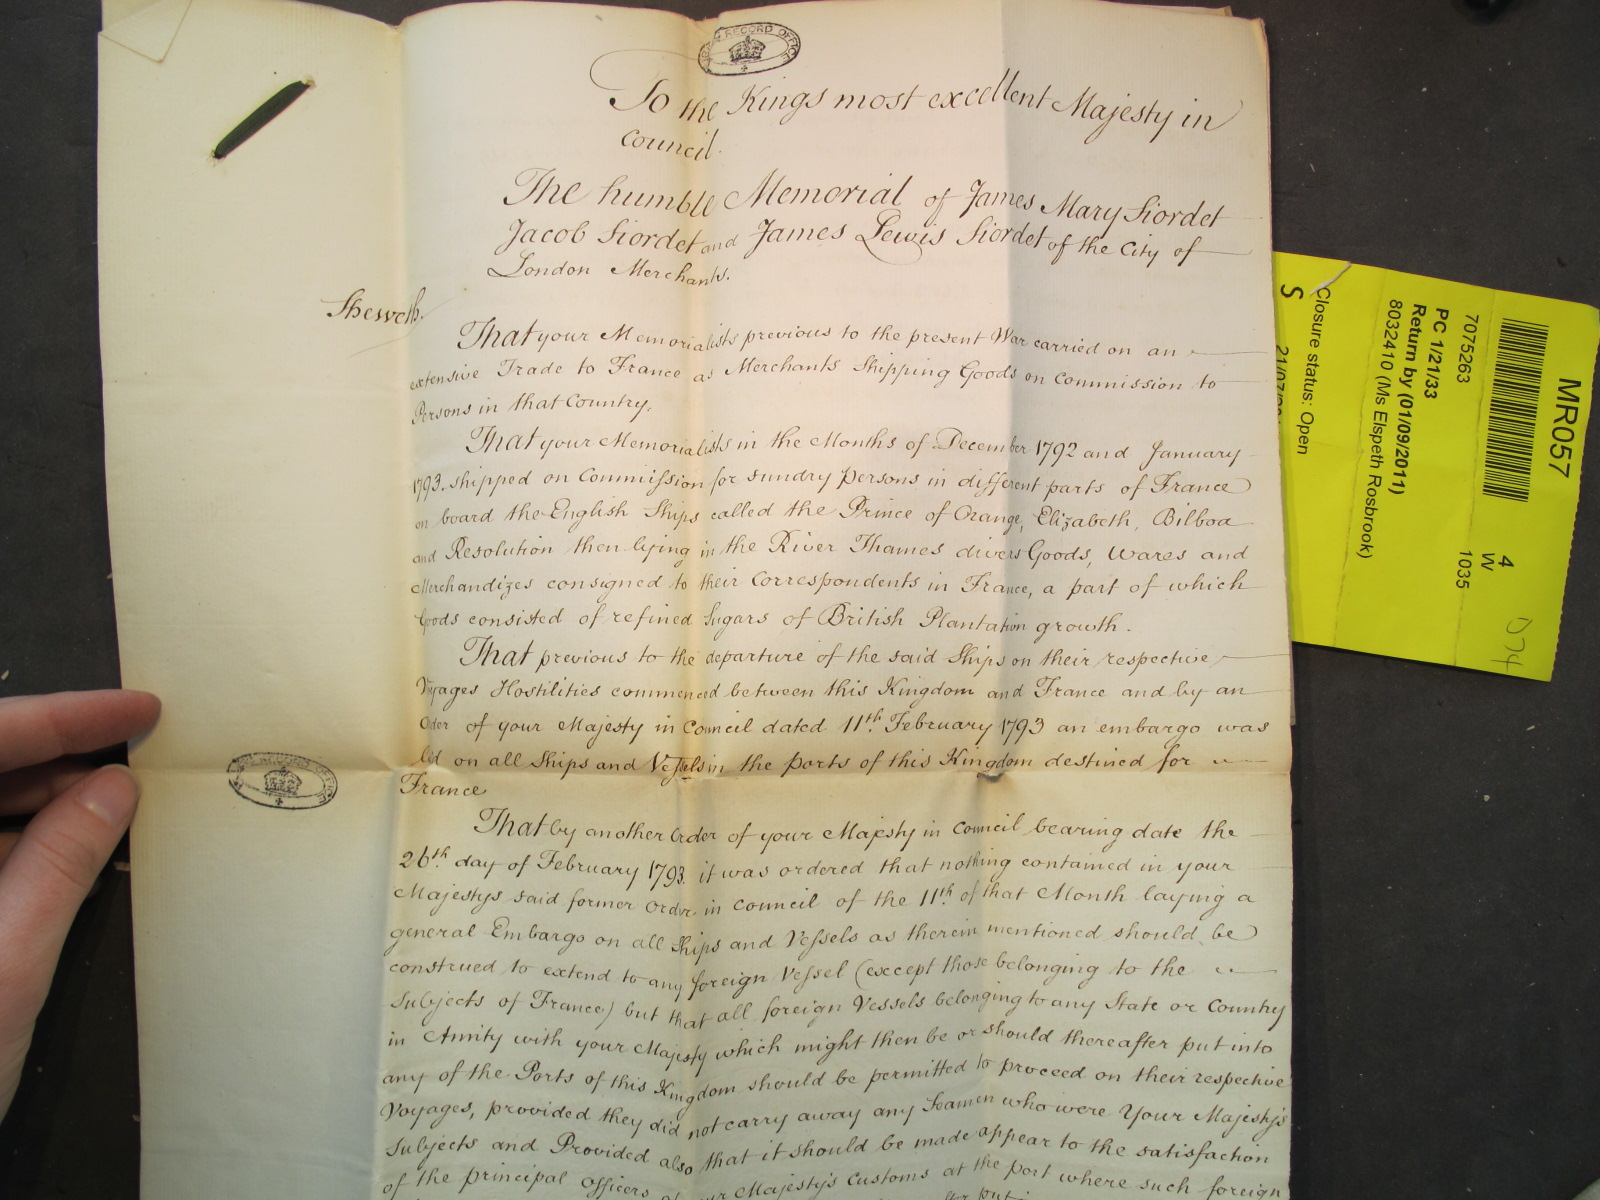 PUBLIC RECORD OFFICE
To the Kings most excellent Majesty in
Council.
The humble Memorial of James Mary Siordet
Jacob Siordet and James Lewis Siordet of the City of
London Merchants.
Sheweth.
That your Memorialists previous to the present War carried on an
extensive Trade to France as Merchants Shipping Goods on Commission to
Persons in that Country.
That your Memorialists in the Months of December 1792 and January
1793. shipped on Commission for sundry Persons in different parts of France
on board the English Ships called the Prince of Orange, Elizabeth, Bilboa
and Resolution then lying in the River Thames divers Goods, Wares and
Merchandizes consigned to their Correspondents in France, a part of which
Goods consisted of refined Sugars of British Plantation growth.
That previous to the departure of the said Ships on their respective
Voyages Hostilities commenced between this Kingdom and France and by an
Order of your Majesty in Council dated 11th. February 1793 an embargo was
laid on all Ships and Vessels in the Ports of this Kingdom destined for
France
That by another Order of your Majesty in Council bearing date the
26th. day of February 1793. it was ordered that nothing contained in your
Majestys said former Order in Council of the 11th of that Month laying a
general Embargo on all Ships and Vessels as therein mentioned should be
construed to extend to any foreign Vessel (except those belonging to the
Subjects of France) but that all foreign Vessels belonging to any State or Country
in Amity with your Majesty which might then be or should thereafter put into
any of the Ports of this Kingdom should be permitted to proceed on their respective
Voyages, provided they did not carry away any Seamen who were Your Majesty's
Subjects and Provided also that it should be made appear to the satisfaction
of the principal Officers of your Majesty's Customs at the port where such foreign
put
PUBLIC RECORD OFFICE
MR057
4
W
1035
074
7075263
PC 1/21/33
Return by (01/09/2011)
8032410 (Ms Elspeth Rosbrook)
Closure status: Open
S